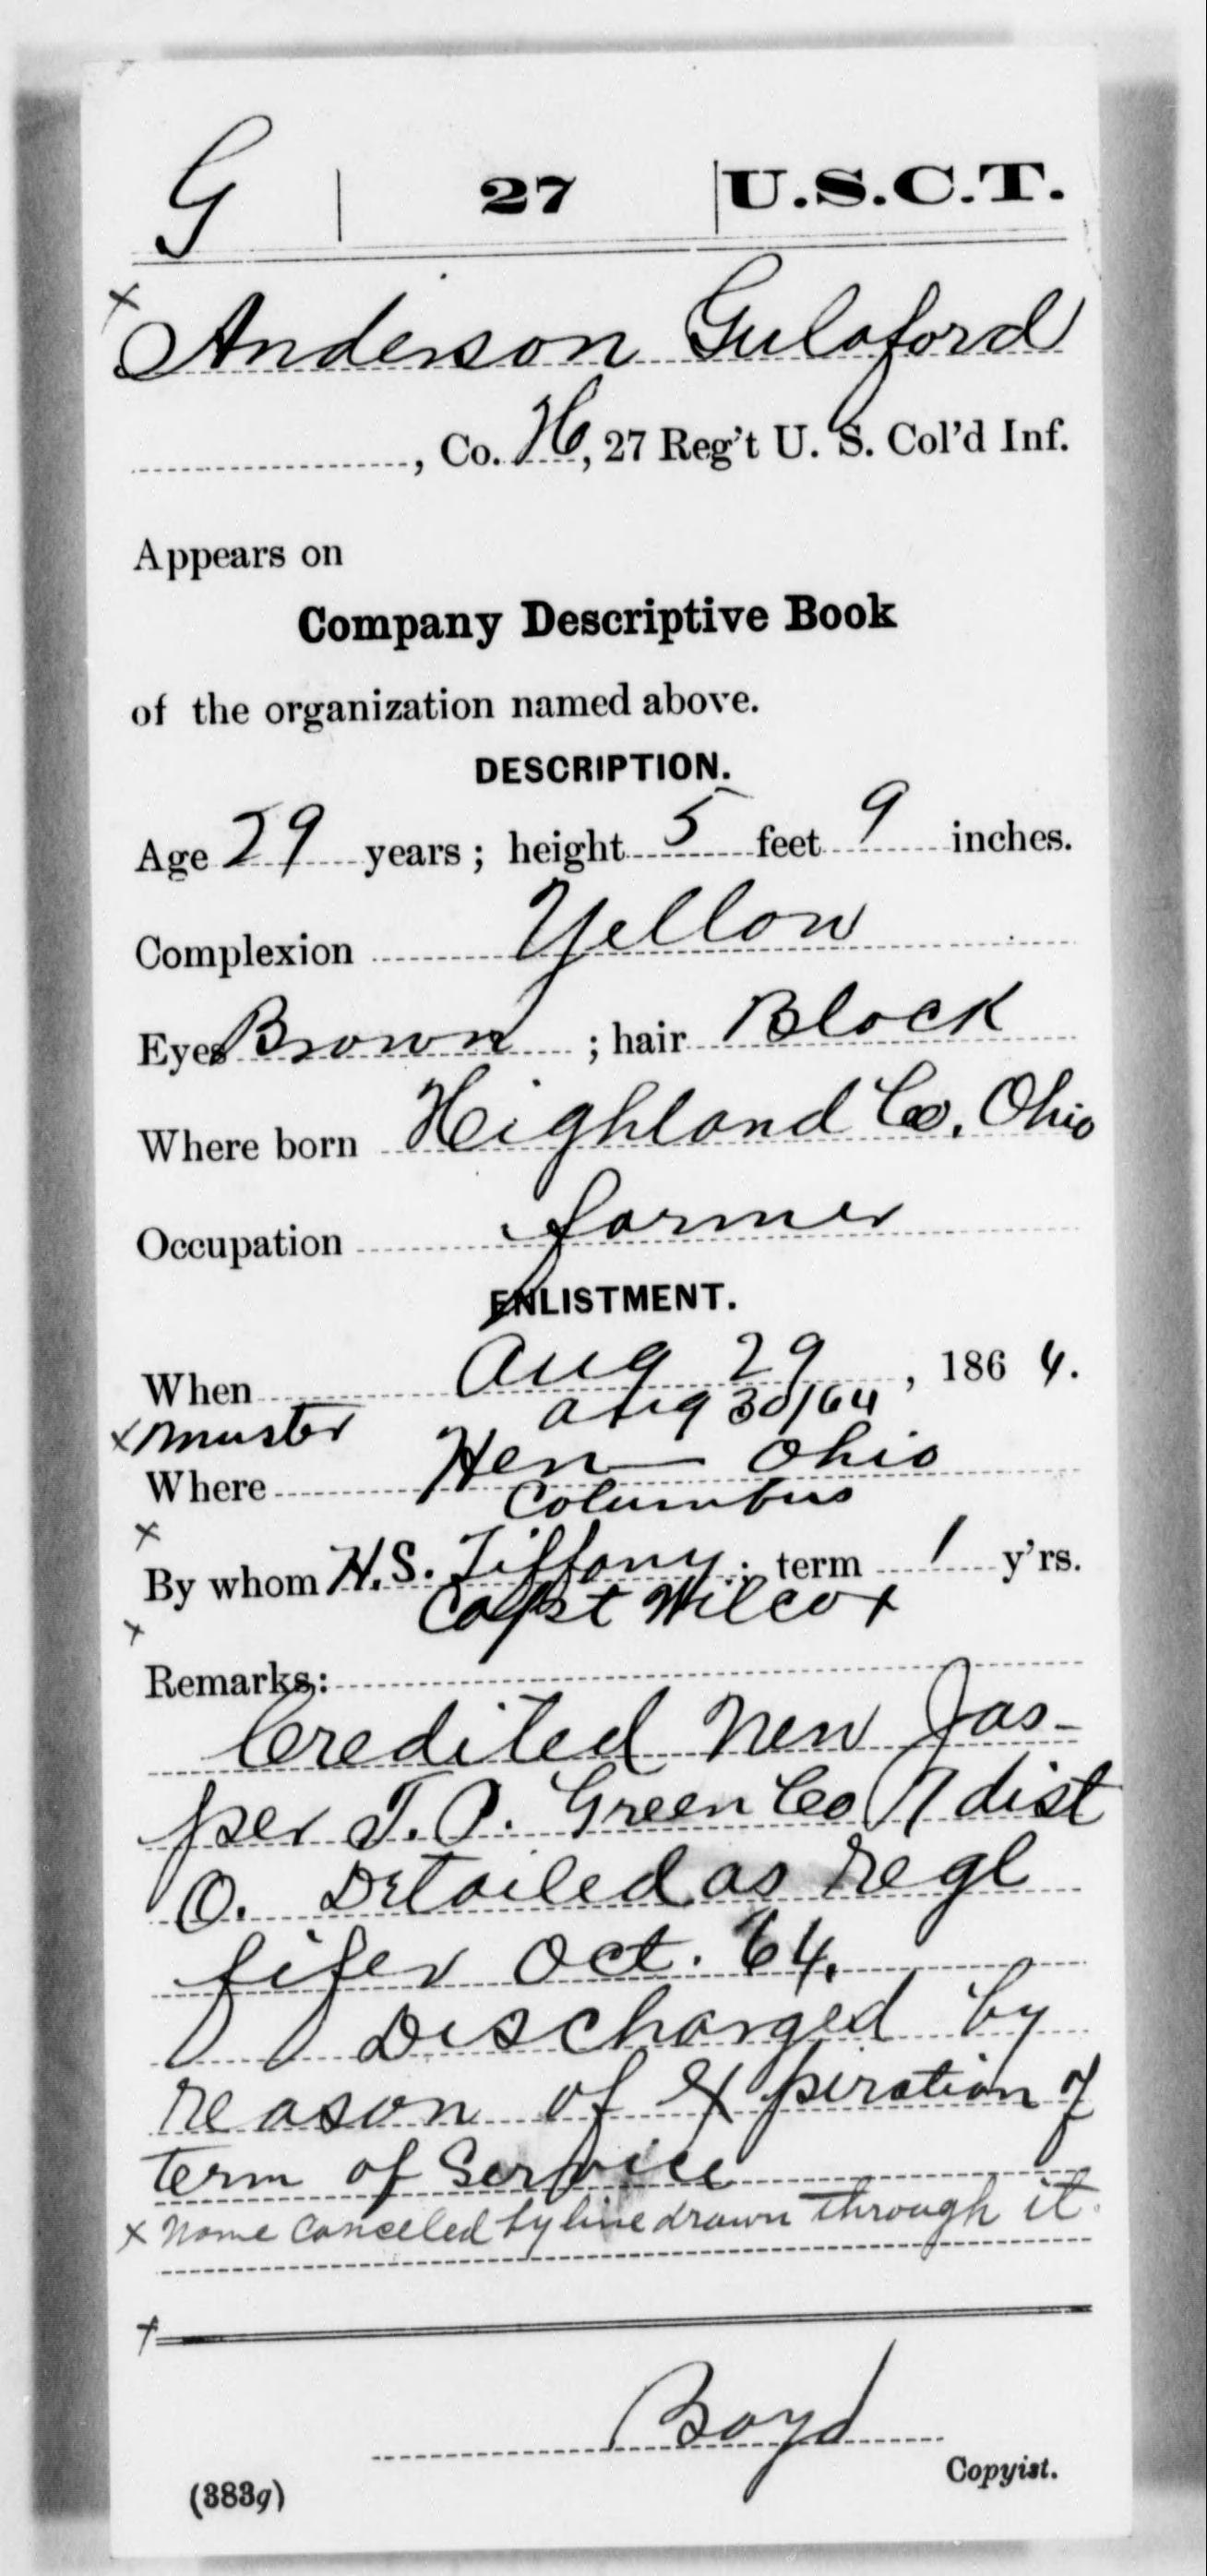 G | 27 | U.S.C.T.
x
Anderson Gulaford
, Co. H, 27 Reg't U. S. Col'd Inf.
Appears on
Company Descriptive Book
of the organization named above.
DESCRIPTION.
Age 29 years; height 5 feet 9 inches.
Complexion Yellow
Eyes Brown ; hair Black
Where born Highland Co. Ohio
Occupation farmer
ENLISTMENT.
When Aug 29, 1864.
x muster Aug 30/64
Where Xen— Ohio
Columbus
x
By whom H.S. Tiffany; term 1 y'rs.
Capt Wilcox
x
Remarks:
Credited New Jas-
per T.P. Green Co 7 dist
O. Detailed as regl
fifer Oct. 64.
Discharged by
reason of expiration of
term of service
x Name canceled by line drawn through it.
x
Boyd
Copyist.
(383g)